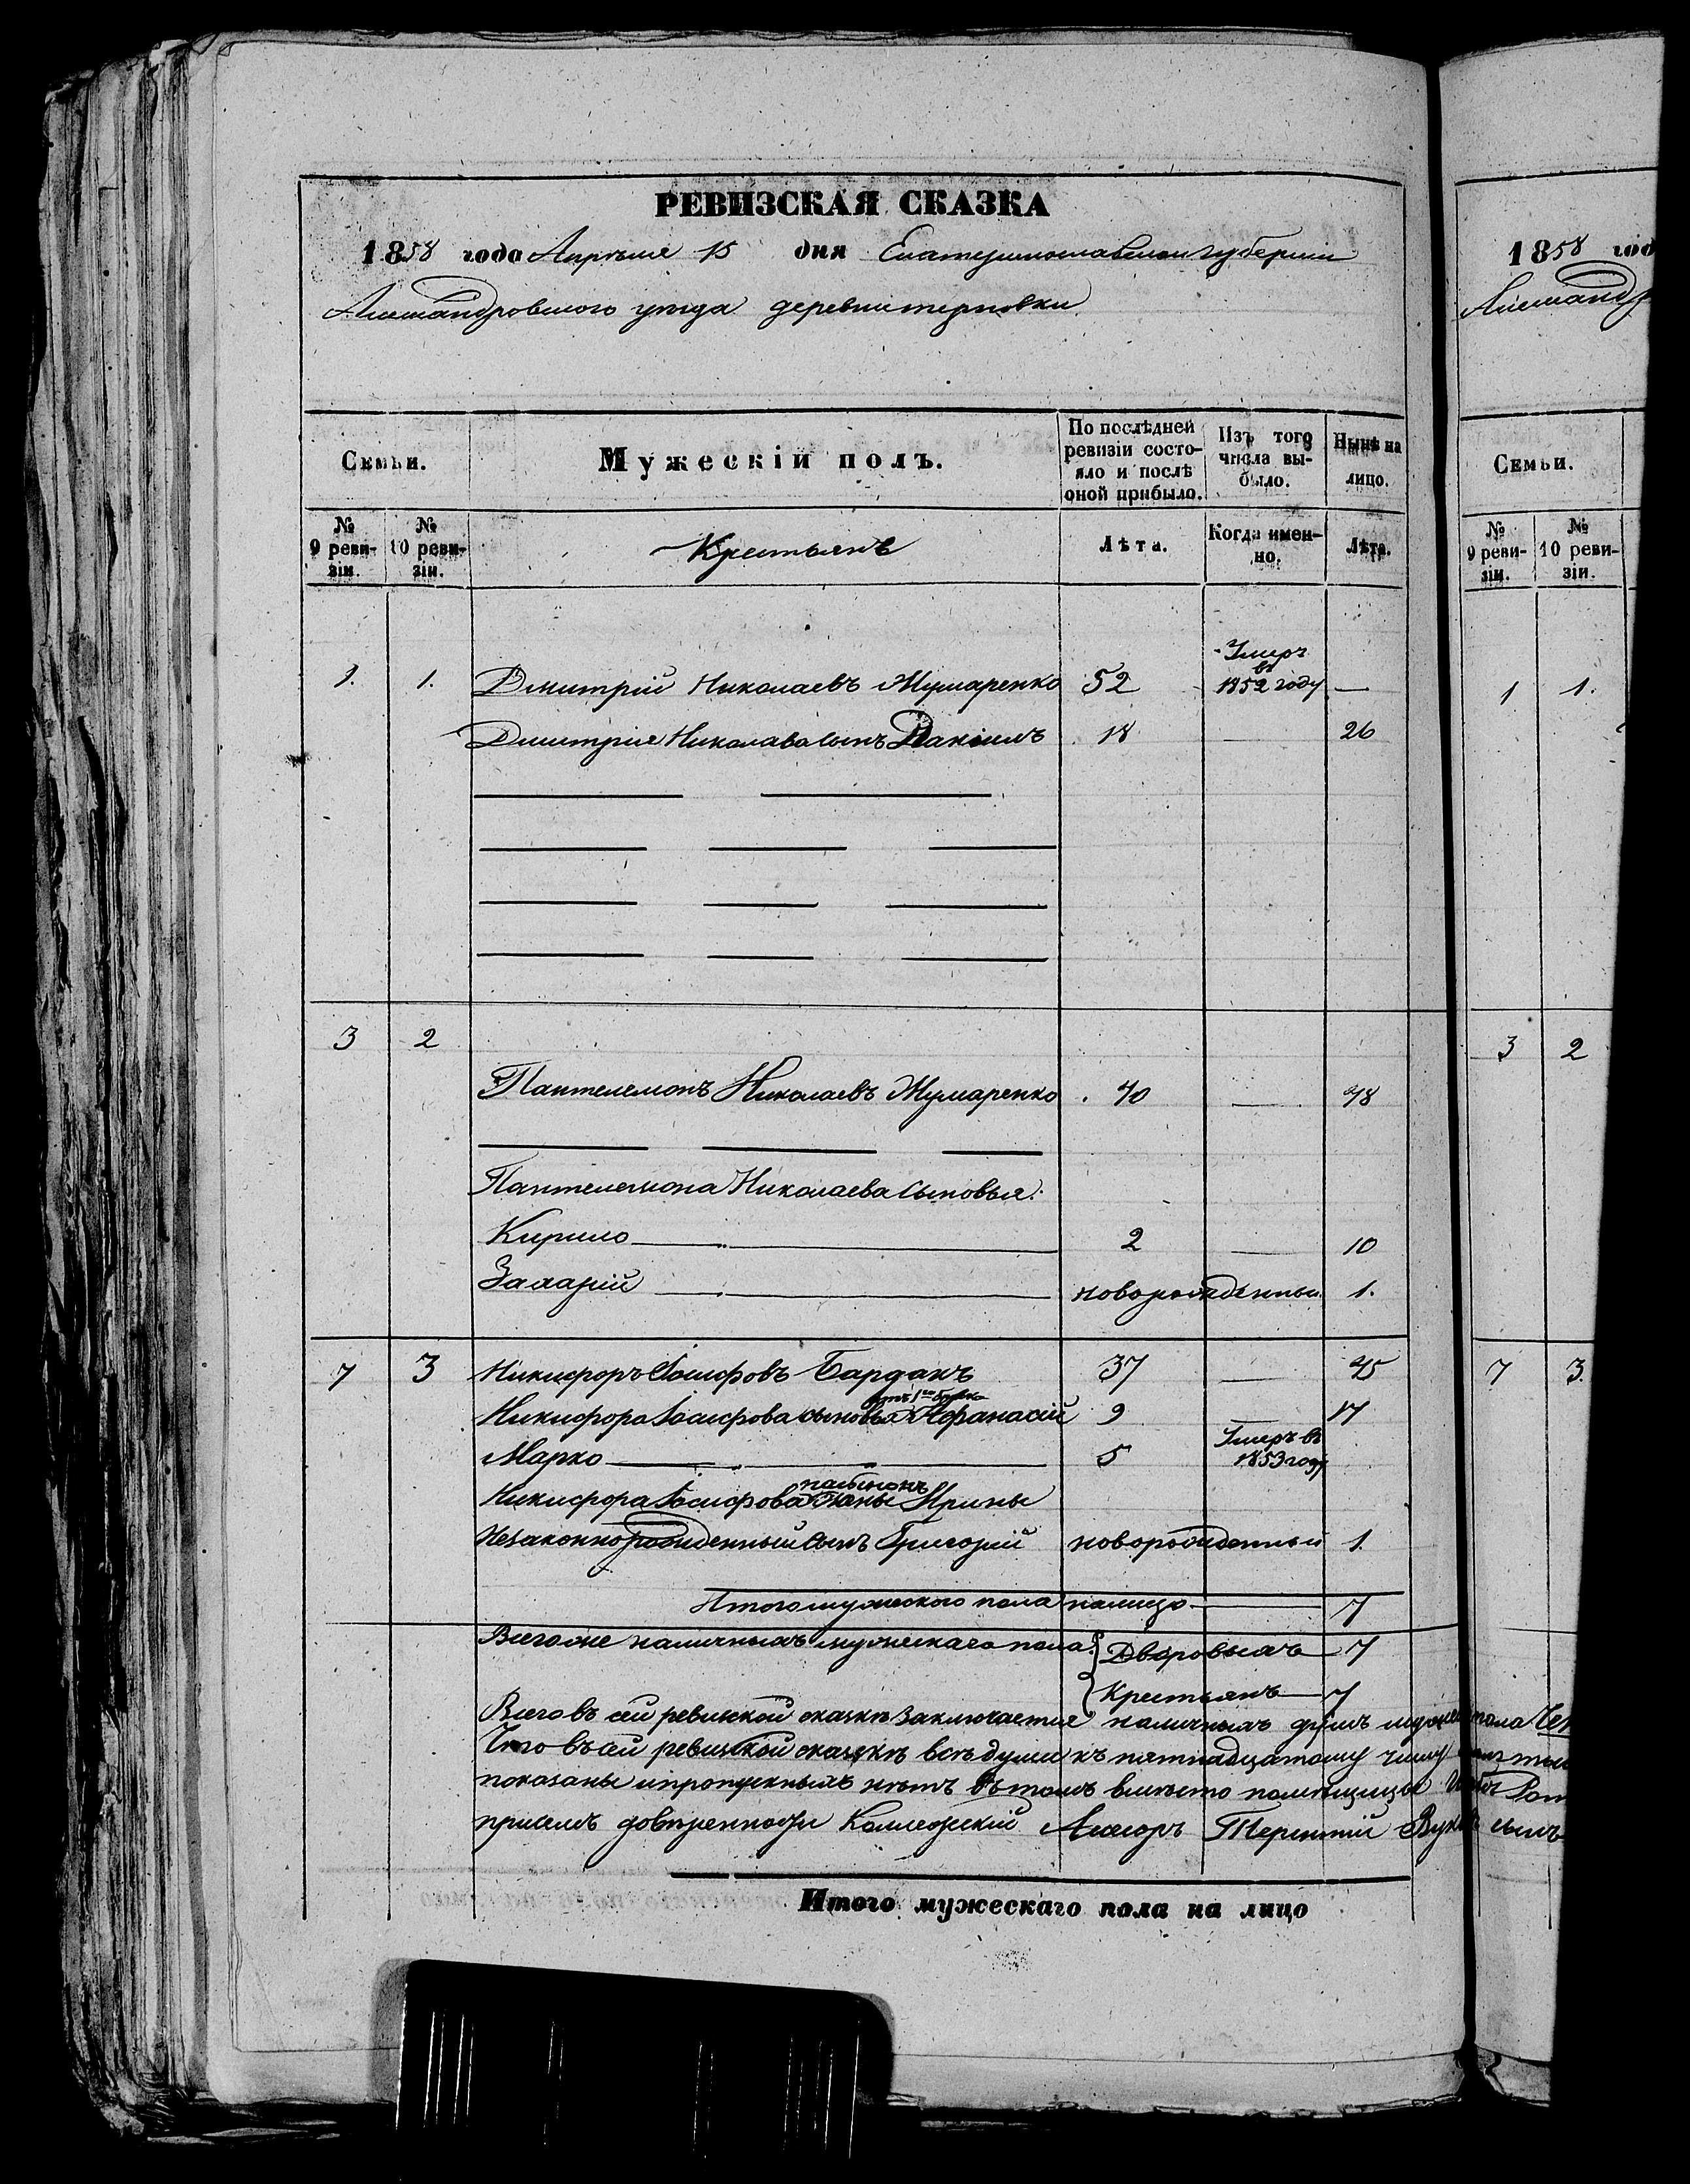 РЕВИЗСКАЯ СКАЗКА
1858 года Апрѣля 15 дня Екатеринославской губерніи
Александровского уѣзда деревни терновки
Семьи.
Мужескій полъ.
По послѣдней ревизіи состояло и послѣ оной прибыло.
Изъ того числа выбыло.
Нынѣ на лицо.
№ 9 ревизіи.
№ 10 ревизіи.
Крестьянъ
Лѣта.
Когда именно.
Лѣта.
1. 1. Дмитрій Николаевъ Жумаренко 52 Умеръ въ 1852 году —
Дмитрія Николава сынъ Максимъ 18 — 26
3 2
Пантелемонъ Николаевъ Жумаренко 40 — 48
Пантелемона Николаева сыновья:
Кирило 2 — 10
Захарій новорожденный 1.
7 3 Никифоръ Іосифовъ Бардакъ 37 — 45
Никифора Іосифова сыновья отъ 1го брака Афанасій 9 — 17
Марко 5 Умеръ въ 1853 году
Никифора Іосифова жены Ирины
Незаконнорожденный сынъ Григорій новорожденный 1.
Итого мужеского пола налицо 7
Всего же наличныхъ мужескаго пола: { Дворовыхъ — 7
{ Крестьянъ — 7
Всего въ сей ревизской сказкѣ заключается наличныхъ душъ пола
Что въ сей ревизской сказкѣ всѣ души къ пятнадцатому числу
показаны и пропускныхъ нѣтъ въ томъ вмѣсто помѣщицы
доверенности Колежскій Асесоръ Терентій сынъ
Итого мужескаго пола на лицо
1858 год
Александр
Семьи.
№ 9 ревизіи.
№ 10 ревизіи.
1 1.
3 2
7 3.